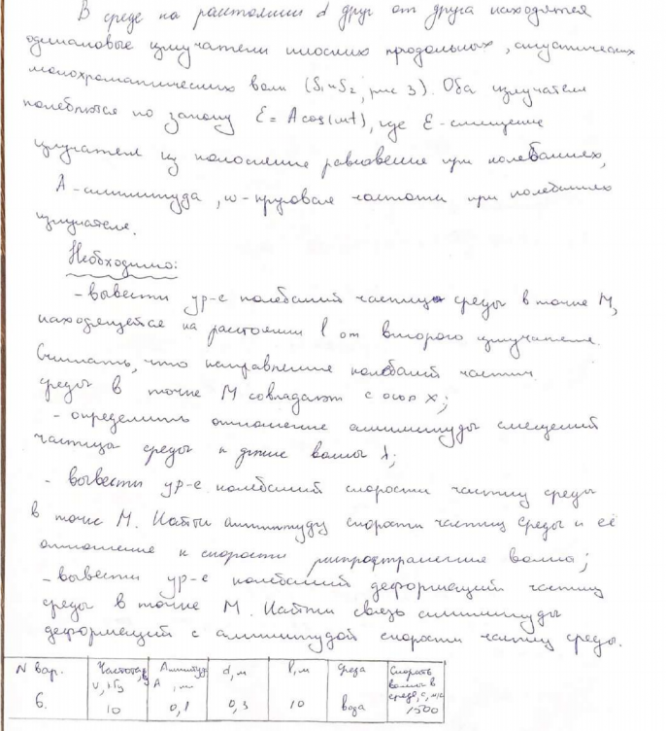 В среде на расстоянии d друг от друга находятся
одинаковые излучатели плоских продольных, акустических
монохроматических волн (S₁ и S₂, рис 3). Оба излучателя
колеблются по закону ℰ = A cos(ωt), где ℰ - смещение
излучателя из положения равновесия при колебаниях,
A - амплитуда, ω - круговая частота при колебании
излучателя.
Необходимо:
- вывести ур-е колебаний частиц среды в точке M,
находящейся на расстоянии l от второго излучателя.
Считать, что направление колебаний частиц
среды в точке M совпадают с осью x;
- определить отношение амплитуды смещений
частица среды к длине волны λ;
- вывести ур-е колебаний скорости частиц среды
в точке M. Найти амплитуду скорости частиц среды и её
отношение к скорости распространения волны;
- вывести ур-е колебаний деформаций частиц
среды в точке M. Найти связь амплитуды
деформаций с амплитудой скорости частиц среды.
N вар. Частота ν, Гц Амплитуда A, d, м l, м Среда Скорость волны в среде, c, м/с
6. 10 0,1 0,3 10 вода 1500